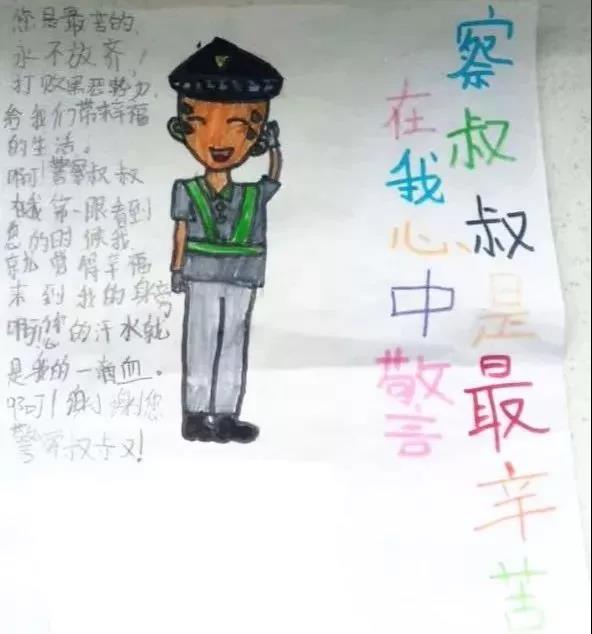 在我心中警
察叔叔是最辛苦
您是最苦的，
永不放齐！
打败黑恶势力，
给我们带来幸福
的生活。
啊！警察叔叔
在我第一眼看到
您的时候我
就觉得幸福
来到我的身旁
啊！您的汗水就
是我的一滴血。
啊！谢谢您
警察叔叔！